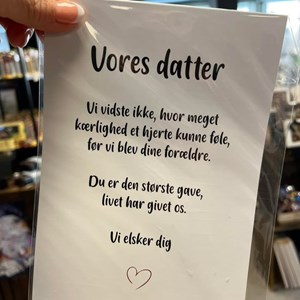 Vores datter
Vi vidste ikke, hvor meget
kærlighed et hjerte kunne føle,
før vi blev dine forældre.
Du er den største gave,
livet har givet os.
Vi elsker dig